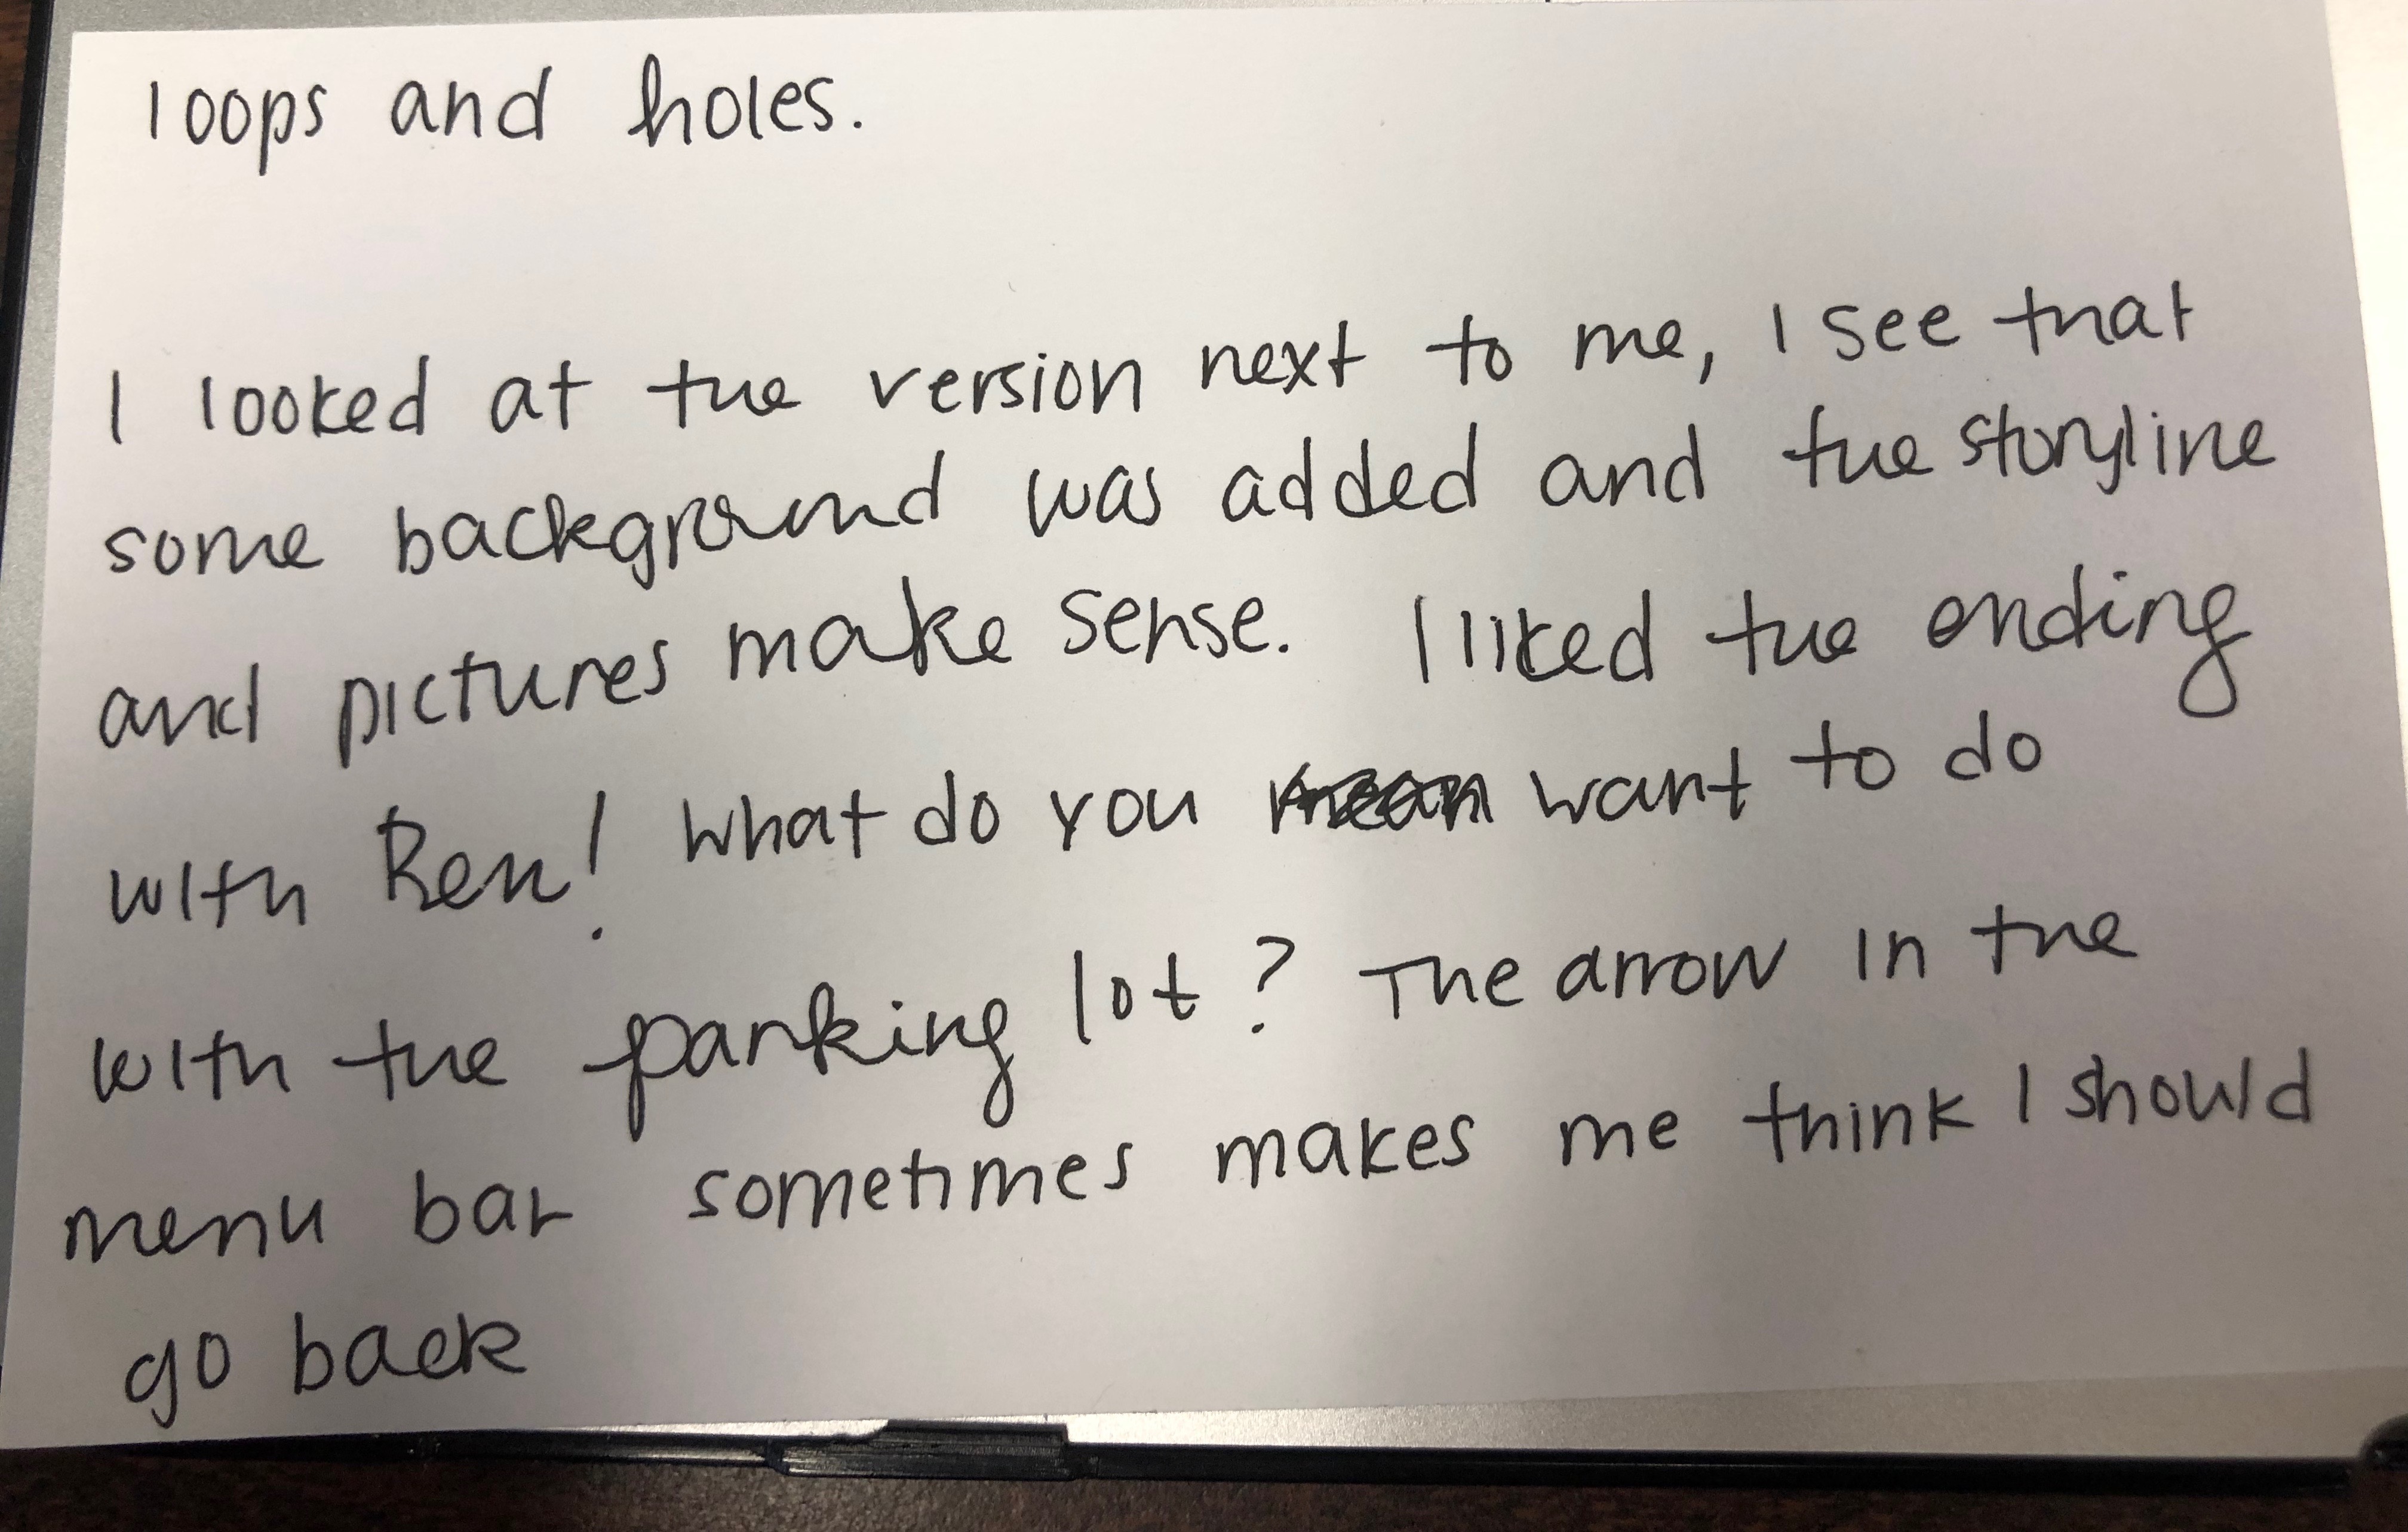 loops and holes.
I looked at the version next to me, I see that
some background was added and the storyline
and pictures make sense. I liked the ending
with Ren! What do you mean want to do
with the parking lot? The arrow in the
menu bar sometimes makes me think I should
go back